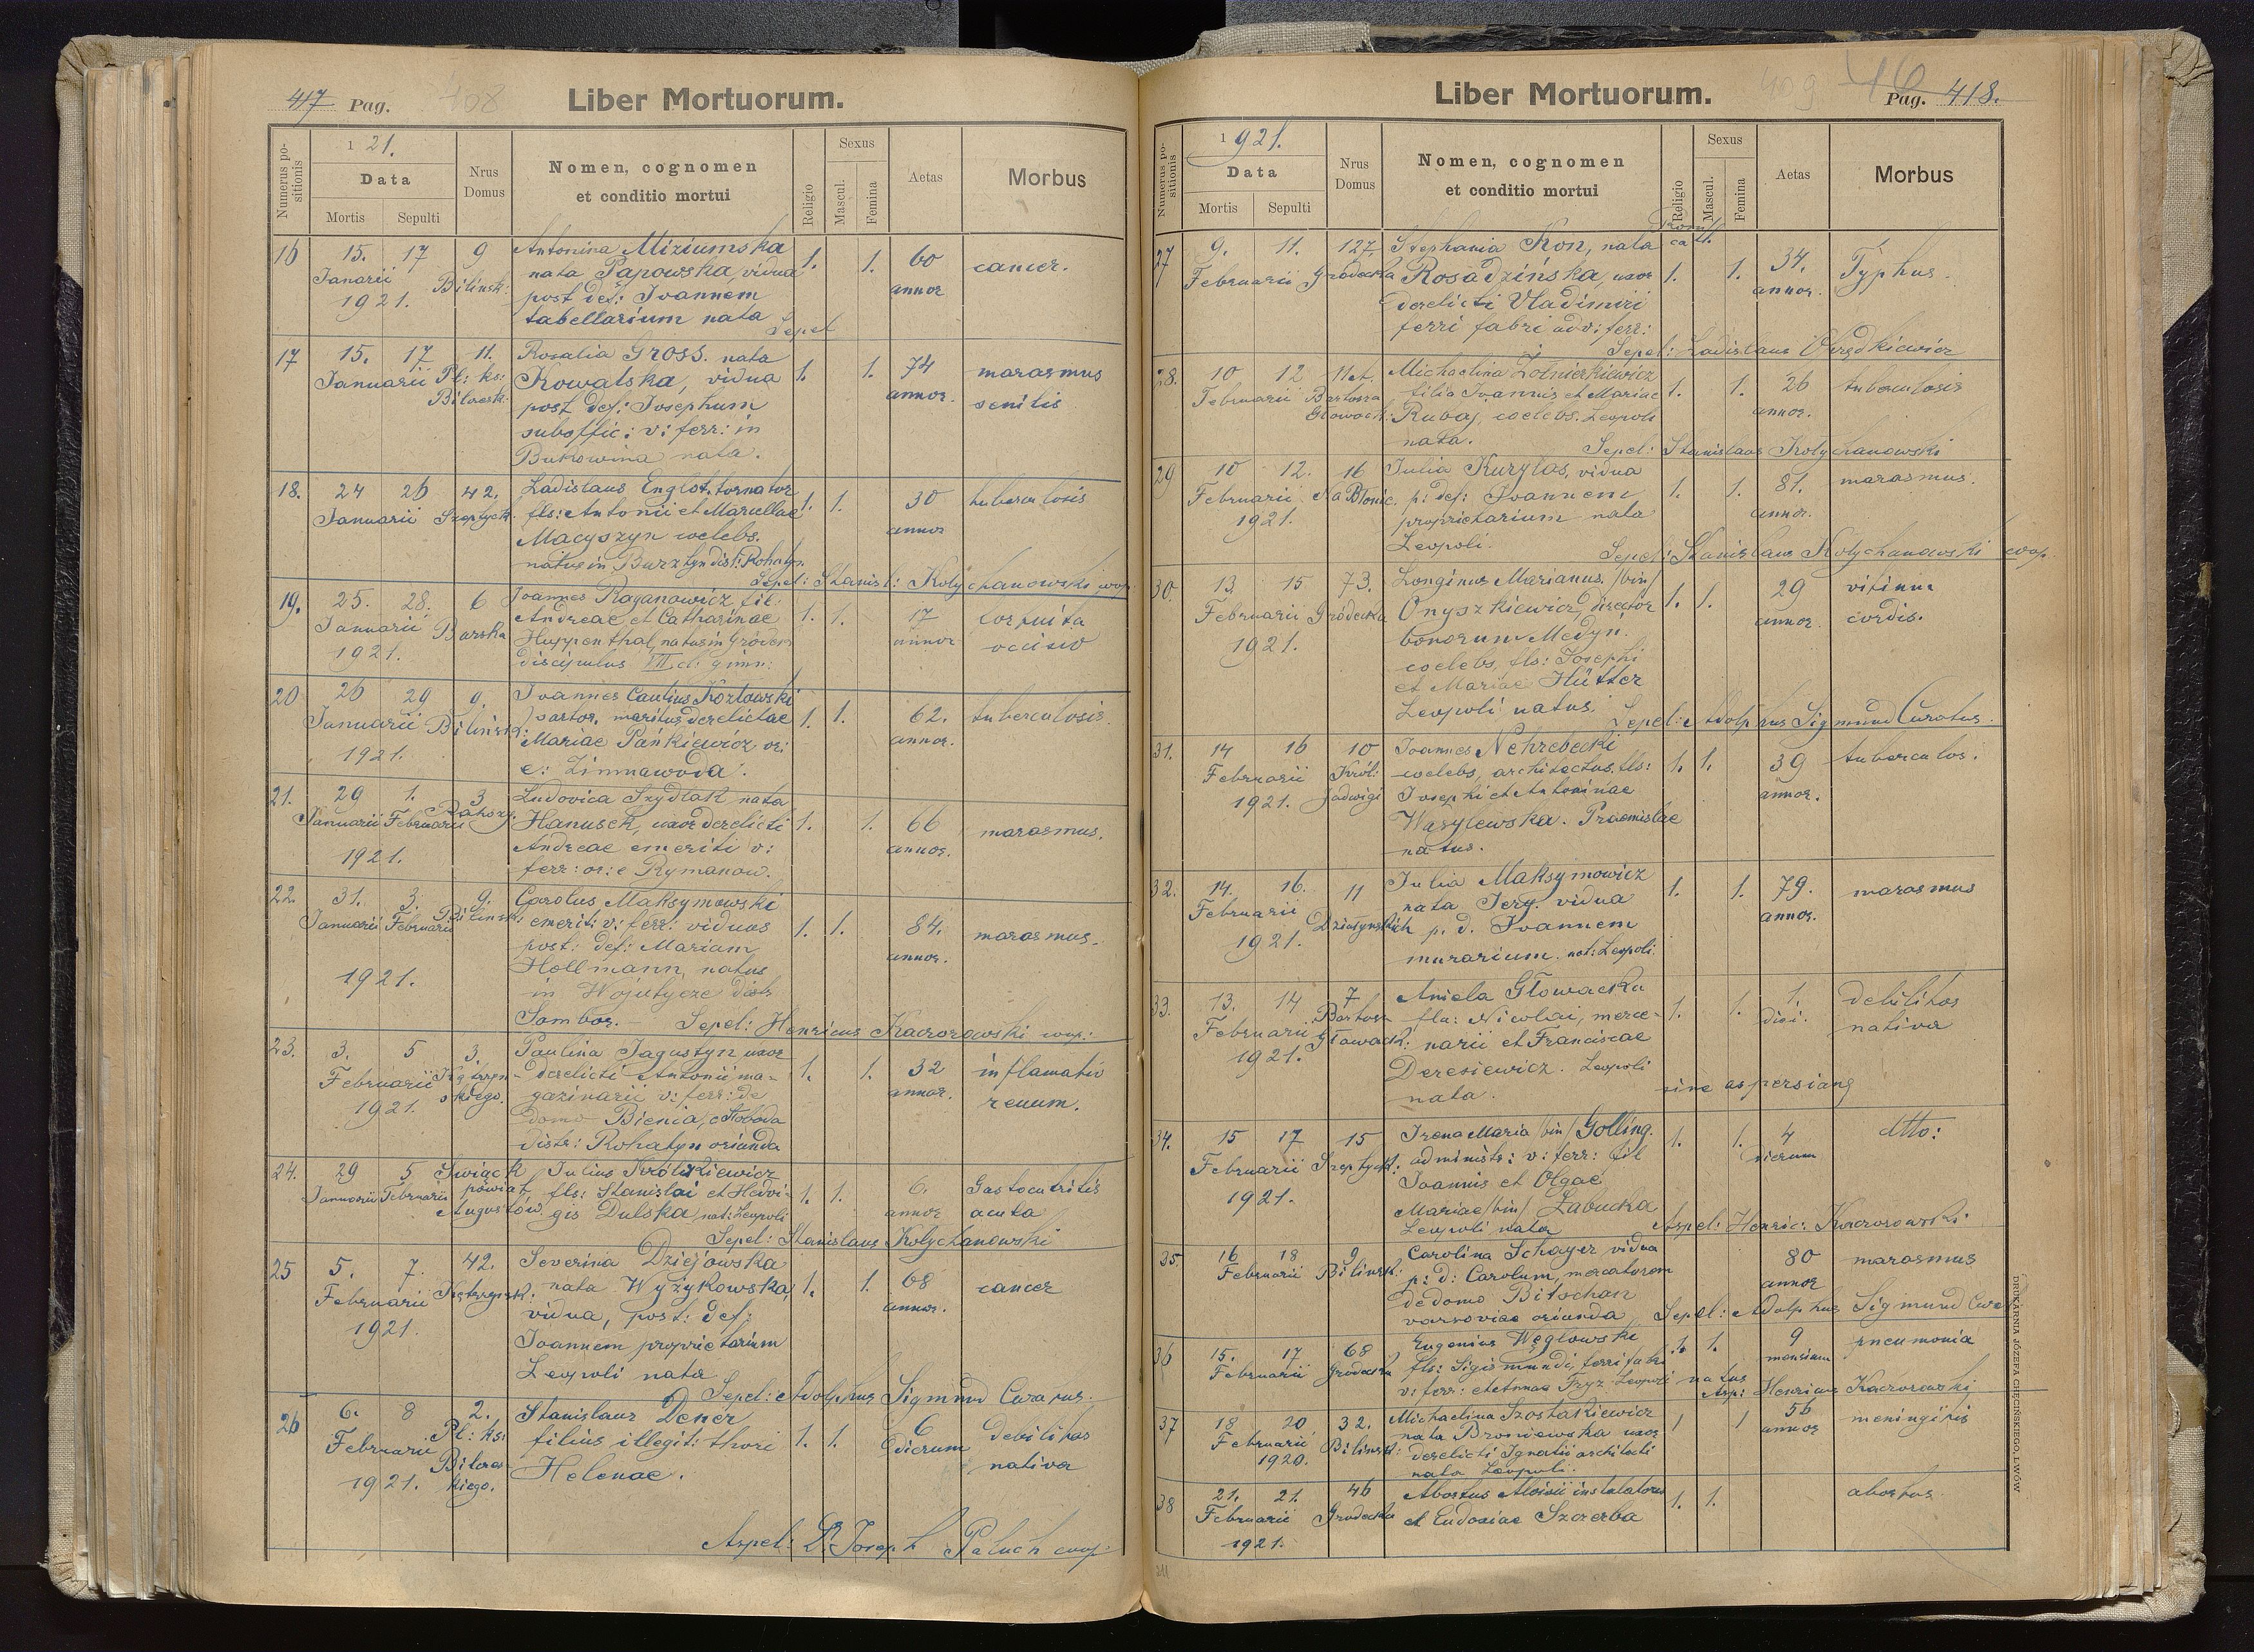 417 Pag. 108
Liber Mortuorum.
Numerus positionis
1 21.
Data
Mortis
Sepulti
Nrus Domus
Nomen, cognomen
et conditio mortui
Religio
Sexus
Mascul.
Femina
Aetas
Morbus
16 15. 17 9 Antonina Miziumska 1. 1. 60 cancer.
Januarii Bilinsk: nata Papowska, vidua annor
1921. post def: Joannem
tabellarium nata
Sepel
17 15. 17 11. Rosalia Gross. nata 1. 1. 74 marasmus
Januarii Pl: ks: Kowalska, vidua annor. senilis
Bilczesk: post def: Josephum
suboffic: v: ferr: in
Bukowina nata.
18. 24 26 42. Ladislaus Englot. tornator 1. 1. 30 tuberculosis
Januarii Szeptyck. fls: Antonii et Marcellae annor
Macyszyn coelebs.
natus in Bursztyn dist: Rohatyn
Sepel: Stanisl: Kolychanowski coop.
19. 25. 28. 6 Joannes Raganowicz fil: 1. 1. 17 fortuita
Januarii Barska Andreae et Catharinae annor occisio
1921. Huppenthal, natus in Gródek
discipulus VII cl: gimn:
20 26 29 9. Joannes Cantius Kozłowski 1. 1. 62. tuberculosis.
Januarii Bilinsk: sartor. maritus derelictae annor.
1921. Mariae Pańkiewicz or:
e: Zimnawoda.
21. 29 1. 3 Ludovica Szydłak nata 1. 1. 66 marasmus.
Januarii Februarii Hanusek, uxor derelicti annor.
1921. Andreae emeriti v:
ferr: or: e Rymanow.
22. 31. 3. 9. Carolus Maksymowski 1. 1. 84. marasmus.
Januarii Februarii Bilinsk: emerit: v: ferr: viduus annor.
post: def: Mariam
1921. Hollmann, natus
in Wojutycze distr
Sambor. Sepel: Henricus Kaczorowski coop:
23. 3. 5 3. Paulina Jagustyn uxor 1. 1. 32 inflamatio
Februarii Kętrzyńskiego. derelicti Antonii ma- annor. renum.
1921. gazinarii v: ferr: de
domo Bienia, e Słoboda
distr: Rohatyn oriunda
24. 29 5 Swiąck Julius Królikiewicz 1. 1. 6. Gastoentritis
Januarii Februarii powiat fls: Stanislai et Hedvi- annor acuta
Augustów gis Dulska nat: Leopoli
Sepel: Stanislaus Kolychanowski
25 5. 7. 42. Severina Dziejowska 1. 1. 68 cancer
Februarii Kętrzyńsk. nata Wyżykowska, annor.
1921. vidua, post: def:
Joannem proprietarium
Leopoli nata
Sepel: Adolphus Sigmund Curatus.
26 6. 8 2. Stanislaus Dener 1. 1. 6 debilitas
Februarii Pl: ks: filius illegit: thori dierum nativa
1921. Bilczeskiego. Helenae.
Aspel: D. Joseph Paluch coop:
Liber Mortuorum.
109 46
Pag. 418.
Numerus positionis
1921.
Data
Mortis
Sepulti
Nrus Domus
Nomen, cognomen
et conditio mortui
Religio
Sexus
Mascul.
Femina
Aetas
Morbus
Rom. cath.
27 9. 11. 127. Stephania Kon, nata 1. 1. 34. Typhus.
Februarii Gródecka Rosadzińska, uxor annor.
derelicti Vladimiri
ferri fabri ad v: ferr:
Sepel: Ladislaus Okrędkiewicz
28. 10 12 11 A. Michaelina Żołnierkiewicz 1. 1. 26 tuberculosis
Februarii Bartosza Głowack: filia Joannis et Mariae annor.
Rubaj, coelebs. Leopoli
nata.
Sepel: Stanislaus Kolychanowski
29 10 12. 16 Julia Kurylas, vidua 1. 1. 81. marasmus.
Februarii Na Błonie. p: def: Joannem annor.
1921. proprietarium nata
Leopoli.
Sepel: Stanislaus Kolychanowski coop.
30. 13. 15 73. Longinus Marianus /bin/ 1. 1. 29 vitium
Februarii Gródecka Onyszkiewicz, director annor. cordis.
1921. bonorum Medyń.
coelebs, fls: Josephi
et Mariae Hütter
Leopoli natus.
Sepel: Adolphus Sigmund Curatus.
31. 14 16 10 Joannes Nehrebecki 1. 1. 39 tuberculos.
Februarii Król: Jadwigi coelebs, architectus, fls: annor.
1921. Josephi et Antoninae
Wasylewska. Praemislae
natus.
32. 14. 16. 11 Julia Maksymowicz 1. 1. 79. marasmus
Februarii Działyńskich nata Jery. vidua annor.
1921. p. d. Joannem
murarium. nat: Leopoli.
33. 13. 14 7 Aniela Głowacka 1. 1. 1. debilitas
Februarii Bartosz Głowack: fla: Nicolai, merce- diei. nativa
1921. narii et Franciscae
Deresiewicz. Leopoli
nata.
sine aspersione
34. 15 17 15 Irena Maria /bin/ Golling. 1. 1. 4 dtto:
Februarii Szeptyck: administr: v: ferr: fil dierum
1921. Joannis et Olgae
Mariae /bin/ Łabucka
Leopoli nata
Aspel: Henric: Kaczorowski.
35. 16 18 9 Carolina Schayer vidua 80 marasmus
Februarii Bilinsk: p: d: Carolum, mercatorem annor
de domo Bitschan
varsoviae oriunda
Sepel: Adolphus Sigmund Cura
36 15. 17 68 Eugenius Węglowski 1. 1. 9 pneumonia
Februarii Grodecka fls: Sigismundi, ferri fabri mensium
v: ferr: et Annae Fryz Leopoli natus
Asp: Henricus Kaczorowski
37 18 20 32. Michaelina Szostakiewicz 1 1 56 meningitis
Februarii Bilinsk: nata Broniewska uxor annor
1920. derelicti Ignatii architecti
nata Leopoli.
38 21. 21. 46 Abortus Aloisii instalatoris 1. 1. abortus.
Februarii Grodecka et Eudosiae Szczerba
1921.
211
DRUKARNIA JÓZEFA CHĘCIŃSKIEGO, LWÓW